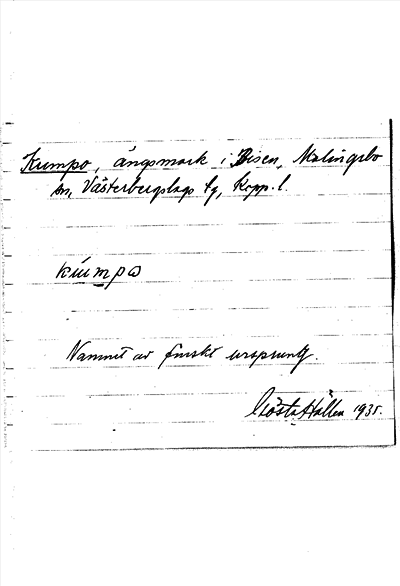 Kumpo, ängsmark i Bisen, Malingsbo
sn, Västerbergslags tg, Kopp. l.
kumpo
Namnet av finskt ursprung.
Gösta Hallén 1935.